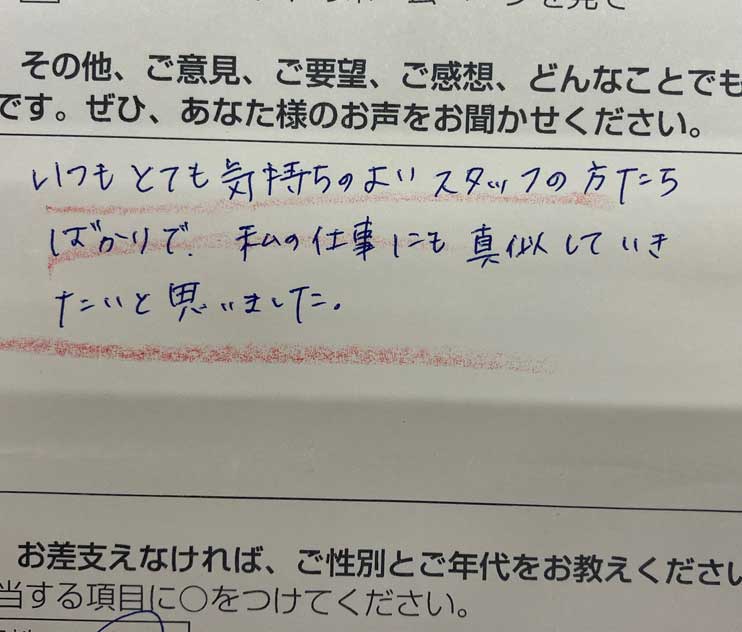 を見て
その他、ご意見、ご要望、ご感想、どんなことでも
です。ぜひ、あなた様のお声をお聞かせください。
いつもとても気持ちのよいスタッフの方たち
ばかりで、私の仕事にも真似していき
たいと思いました。
お差支えなければ、ご性別とご年代をお教えくださ
当する項目に○をつけてください。